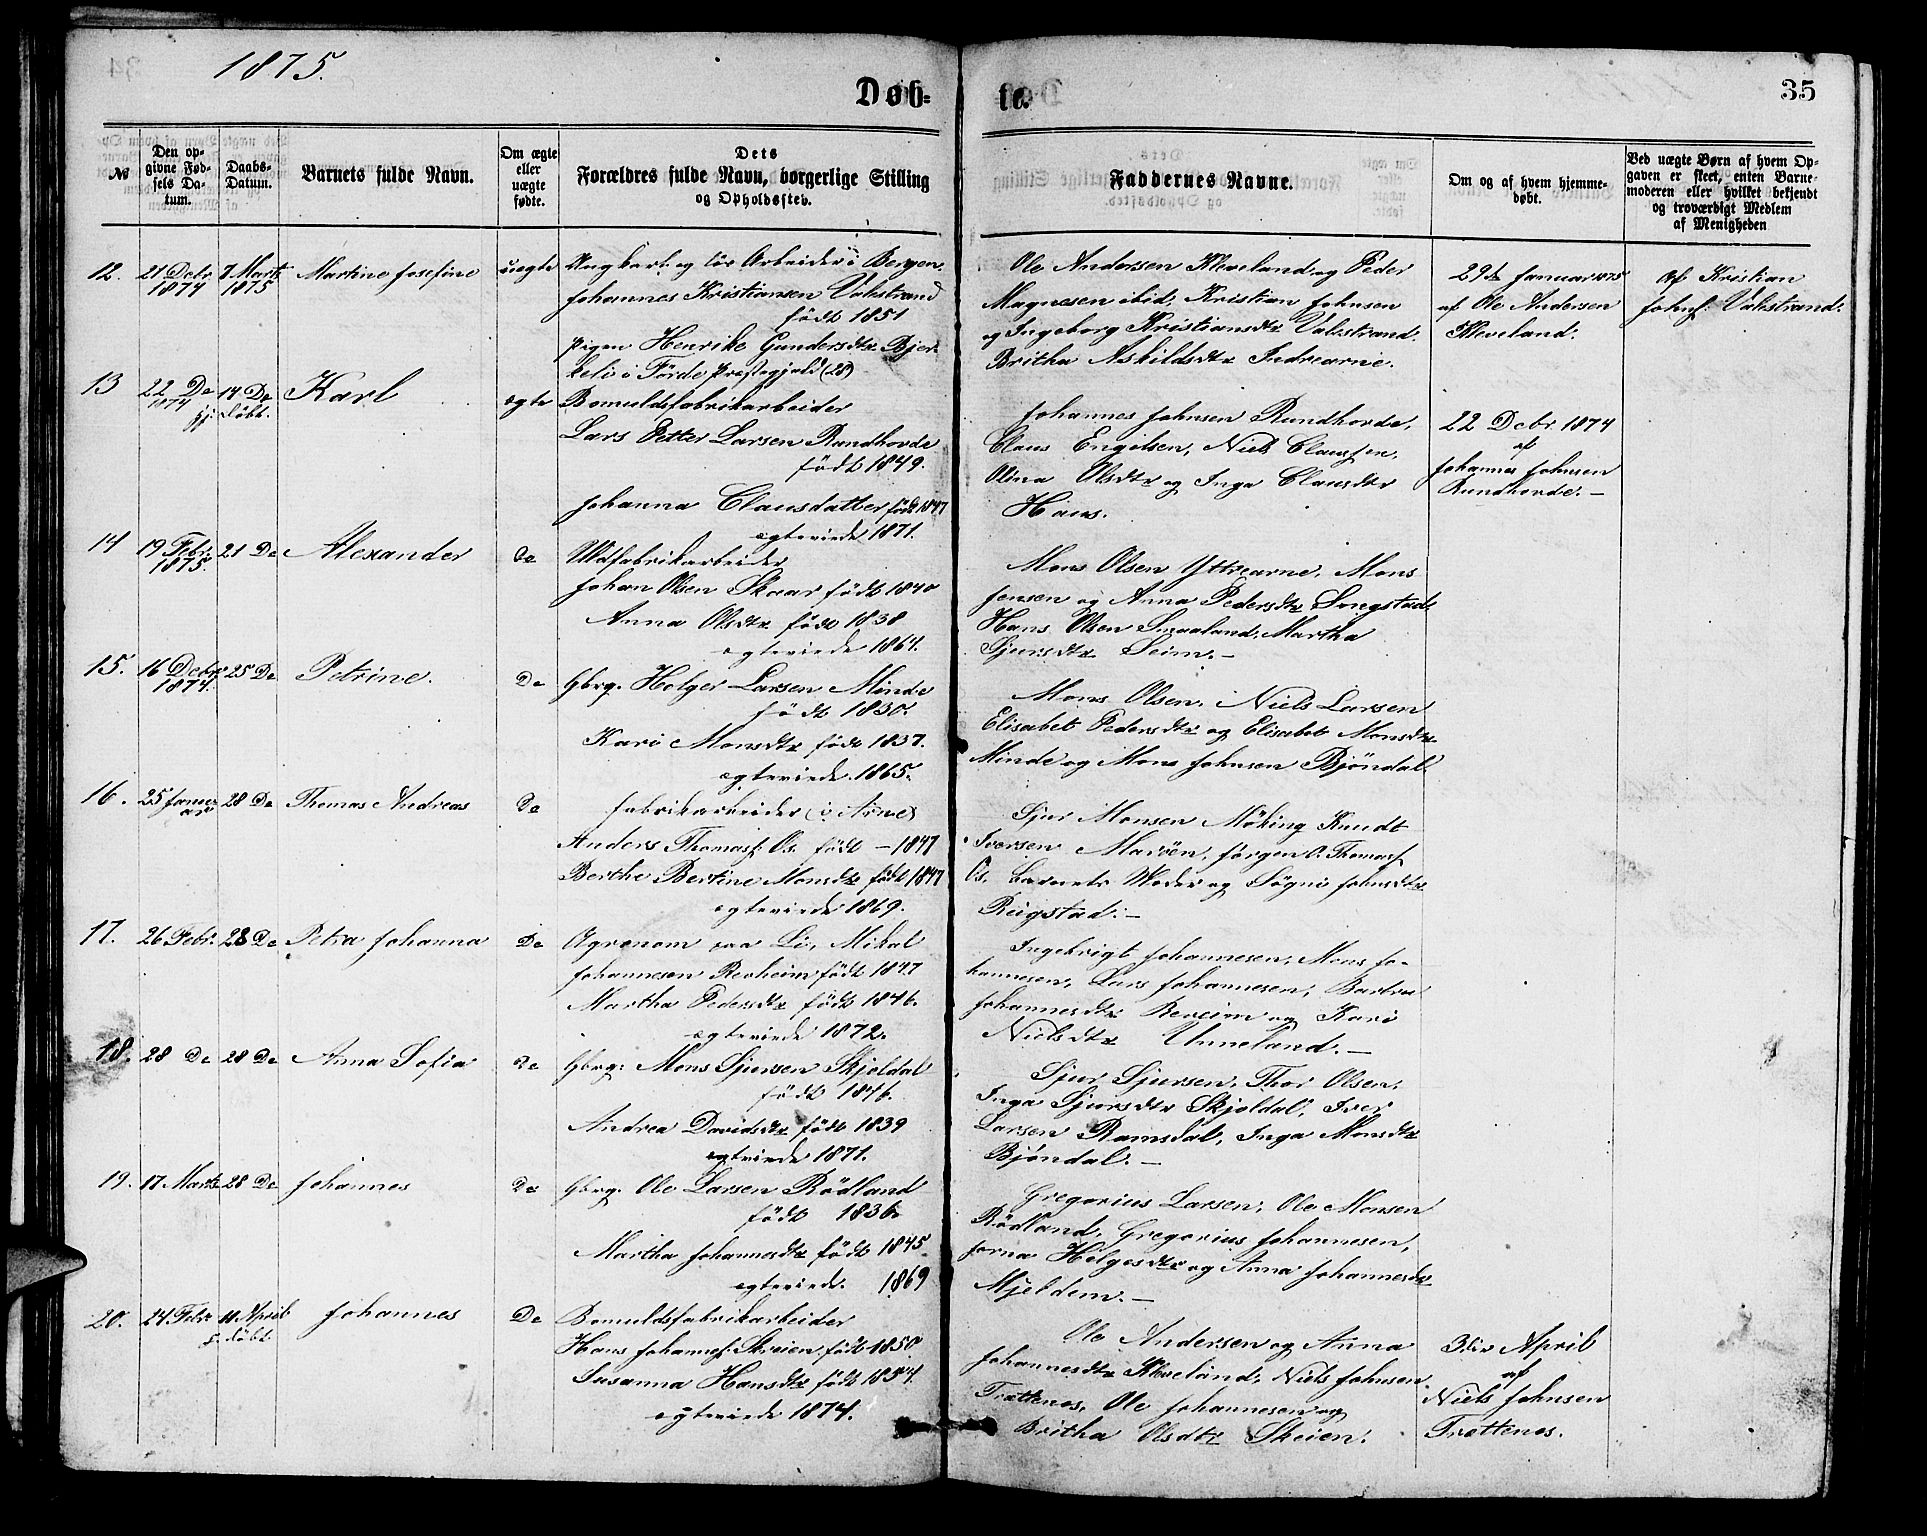 1875.
Døb-
te.
35
№
Den op-
givne Fød-
sels Da-
tum.
Daabs-
Datum.
Barnets fulde Navn.
Om ægte
eller
uægte
fødte.
Dets
Forældres fulde Navn, borgerlige Stilling
og Opholdssted.
Faddernes Navne.
Om og af hvem hjemme-
døbt.
Ved uægte Børn af hvem Op-
gaven er skeet, enten Barne-
moderen eller hvilket bekjendt
og troværdigt Medlem
af Menigheden
12. 21 Decbr 7 Marts Martine Josefine uegte Ungkarl og Arbeider i Bergen
1874 1875
Johannes Kristiansen Valestrand
født 1851
Pigen Henrike Gundersdtr Bjer-
keli i Förde Præstegjeld (28)
Ole Andersen Kleveland og Peder
Magnesen ibid, Kristian Johnsen
og Ingeborg Kristiansdtr Valestrand.
Britha Askildsdtr Indrearne.
29de Januar 1875
af Ole Andersen
Kleveland.
af Kristian
Johns. Valestrand.
13 22 De 14 De Karl egte Bomuldsfabrikarbeider
1874 hj. døbt.
Lars Petter Larsen Rundhovde
født 1849.
Johanna Clausdatter født 1847
egteviede 1871.
Johannes Johnsen Rundhovde,
Claus Engelsen, Niels Claussen,
Olina Olsdtr og Inga Clausdtr
Haus.
22 Decbr 1874
af
Johannes Johnsen
Rundhovde. –
14 19 Febr. 21 De Alexander De Uldfabrikarbeider
1875.
Johan Olsen Skaar født 1840
Anna Olsdtr født 1838
egteviede 1864.
Mons Olsen Yttrearne, Mons
Jensen og Anna Pedersdtr Songstad
Hans Olsen Smaaland, Martha
Sjursdtr Seim. –
15. 16 Decbr 25 De Petrine. De Gbrg. Holger Larsen Minde
1874.
født 1830.
Kari Monsdtr født 1837.
egteviede 1865.
Mons Olsen, Niels Larsen
Elisabet Pedersdtr og Elisabet Monsdtr
Minde og Mons Johnsen Bjöndal.
16. 25 Janu- 28 De Thomas Andreas De Fabrikarbeider (i Arne)
ar
Anders Thomass. Os. født – 1847
Berthe Bertine Monsdtr født 1847
egteviede 1869.
Sjur Monsen Möking Knudt
Iversen Marøen, Jörgen O. Thomass.
Os, barnets Moder og Sögni Johnsdtr
Reigstad. –
17. 26 Febr. 28 De Petra Johanna De Agronom paa Li, Mikal
Johannesen Revheim født 1847
Martha Pedersdtr født 1846.
egteviede 1872.
Ingebrigt Johannesen, Mons Jo-
hannesen, Lars Johannesen, Barbra
Johannesdtr Reveim og Kari
Nielsdtr Unneland. –
18. 28 De 28 De Anna Sofia De Gbrg: Mons Sjursen Skjoldal
født 1846.
Andrea Davidsdtr født 1839
egteviede 1871.
Sjur Sjursen, Thor Olsen,
Inga Sjursdtr Skjoldal, Iver
Larsen Ramsdal, Inga Monsdtr
Bjøndal. –
19. 17 Marts 28 De Johannes De Gbrg. Ole Larsen Rödland
født 1836
Martha Johannesdtr født 1845
egteviede. 1869
Gregorius Larsen, Ole Monsen
Rödland, Gregorius Johannesen,
Helgesdtr og Anna Johannesdtr
Mjeldem. –
20. 24 Febr 11 April Johannes De Bomuldsfabrikarbeider
døbt
Hans Johannes. Skeien født 1850
Susanna Hansdtr født 1854.
egteviede 1874.
Ole Andersen og Anna
Johannesdtr Kleveland, Niels Johnsen
Trættenes, Ole Johannesen og
Britha Olsdtr Skeien.
3die April
af
Niels Johnsen
Trættenes.